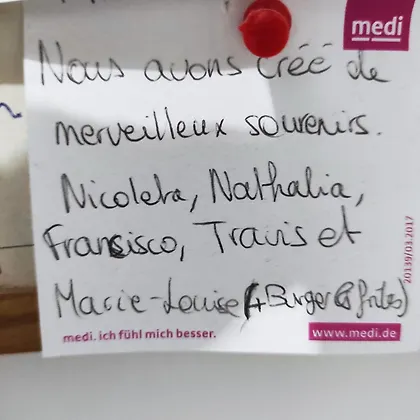 medi
Nous avons créé de
merveilleux souvenirs.
Nicoleta, Nathalia,
Francisco, Travis et
Marie-Louise (+Burger & frites)
medi. ich fühl mich besser.
www.medi.de
20139/03.2017